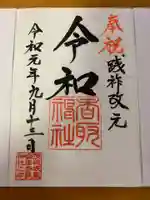 奉祝 践祚改元
令和
香取神社
令和元年九月十三日